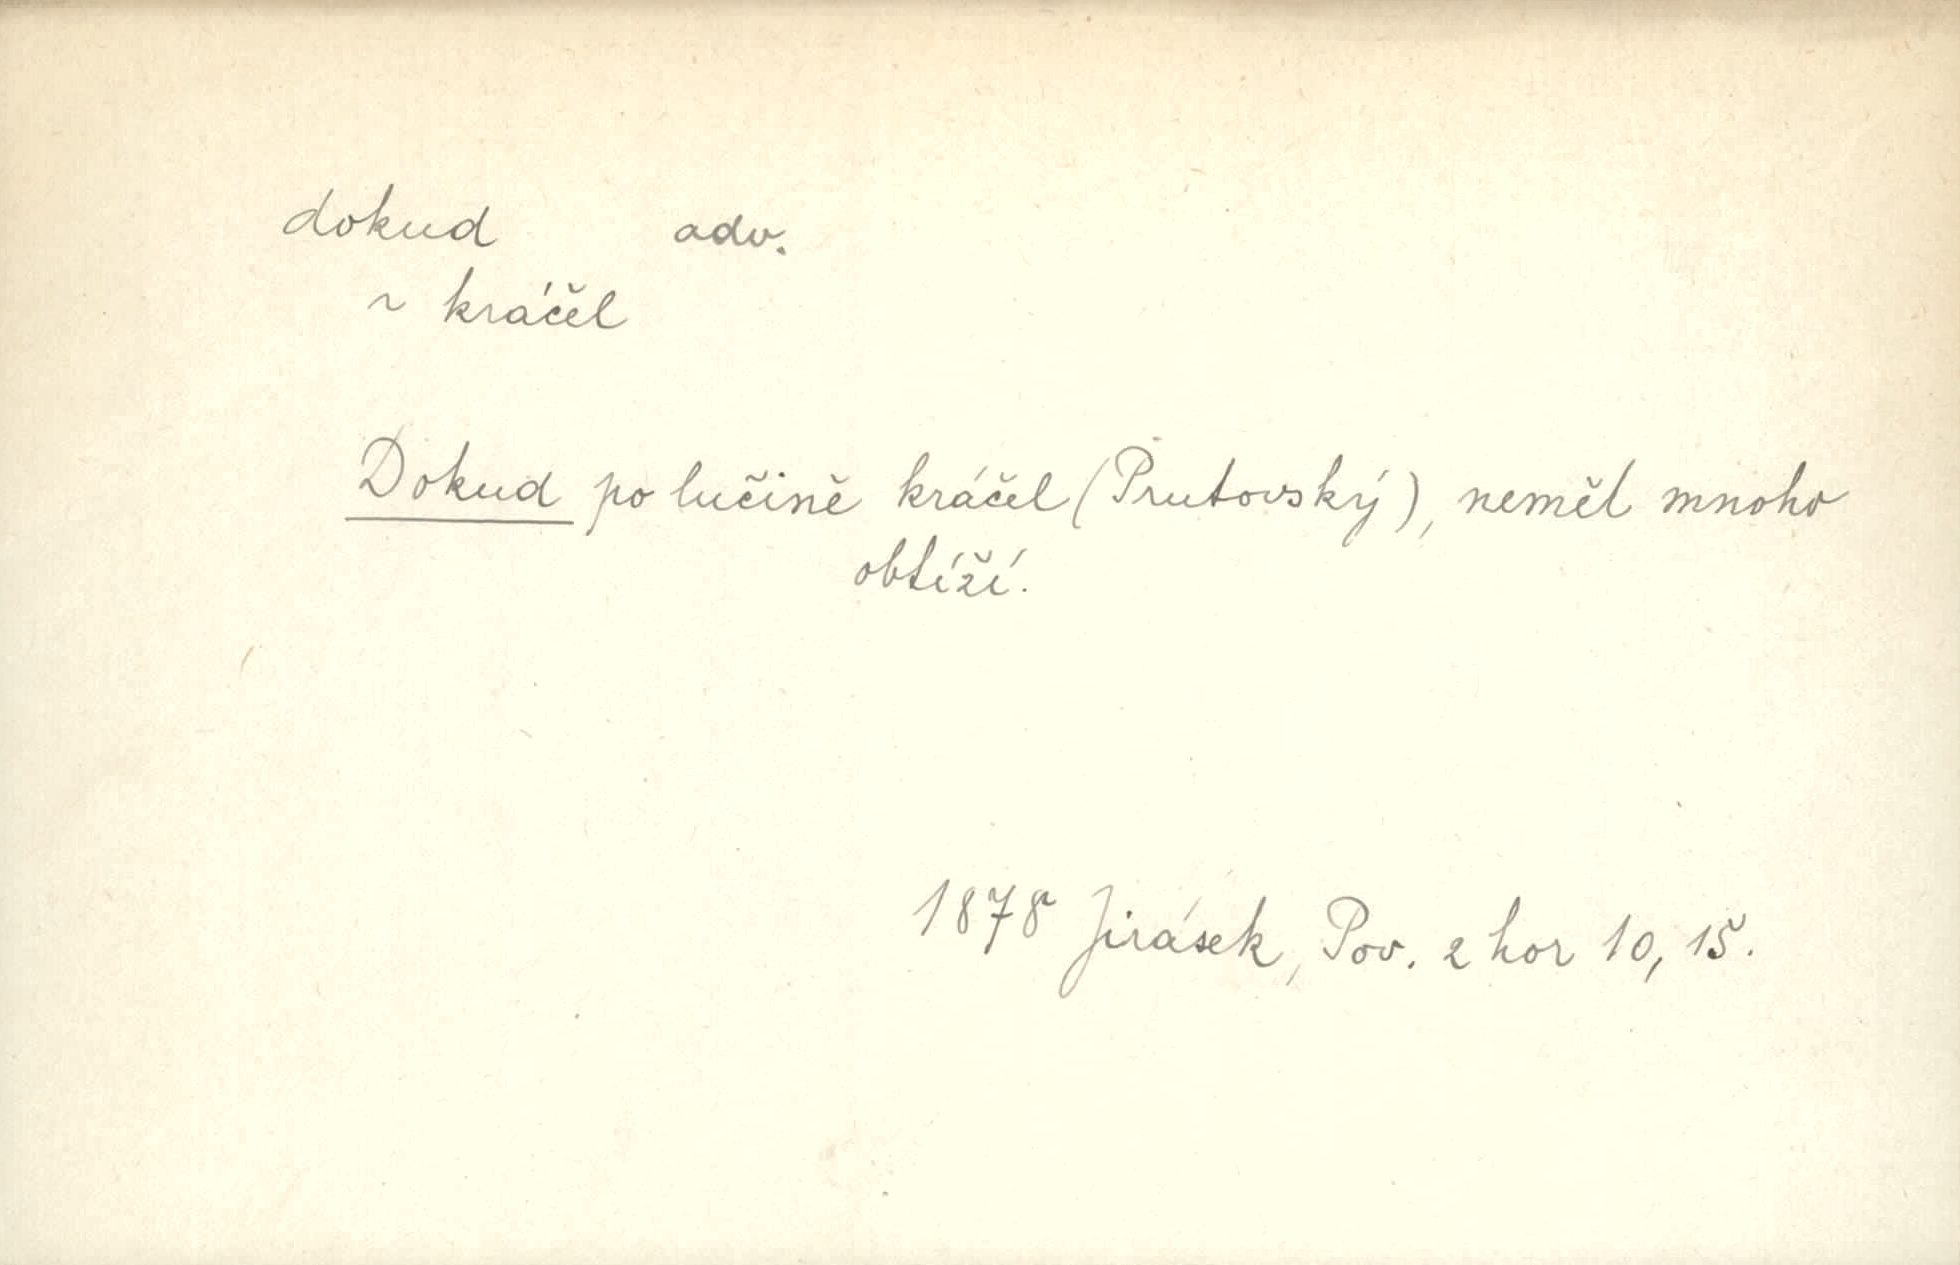 dokud adv.
~ kráčel
Dokud po lučině kráčel (Prutovský), neměl mnoho
obtíží.
1878 Jirásek, Pov. z hor 10, 15.